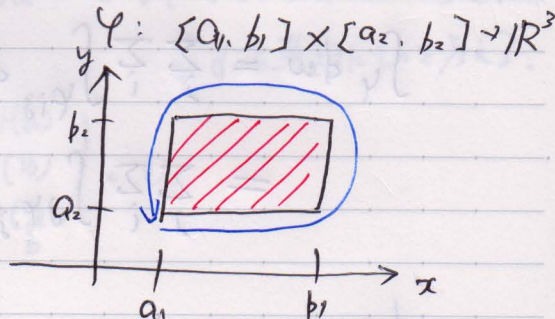 φ: [a₁, b₁] × [a₂, b₂] → ℝ³
y
b₂
a₂
a₁
b₁
x